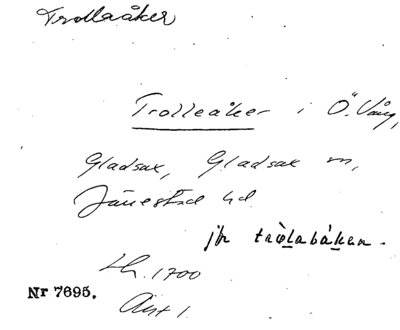 Trollaåker
Trolleåker i Ö. Vång,
Gladsax, Gladsax sn,
Järrestad hd.
jfr tròlabåken.
Lh. 1700
Avst 1.
Nr 7695.